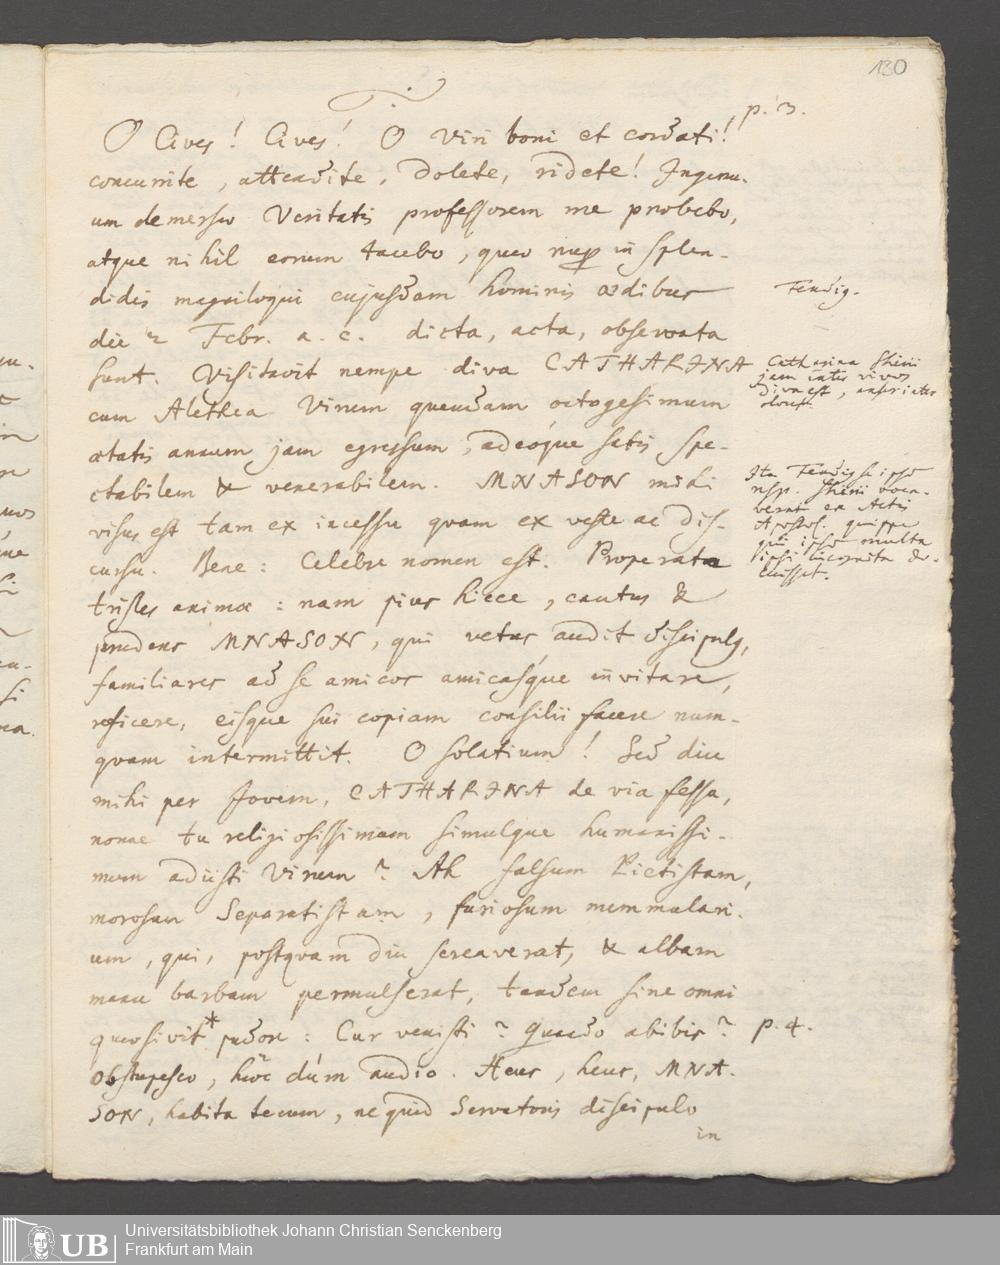 130
p. 3.
O Cives! Cives! O Viri boni et cordati!
concurrite, attendite, dolete, ridete! Ingenu-
um demersw Veritatis professorem me probebo,
atque nihil eorum tacebo, quae nup in splen-
didis magniloqui cujusdam hominis ædibus
die 2 Febr. a. c. dicta, acta, observata
sunt. Visitavit nempe diva CATHARINA
cum Alethea Virum quendam octogesimum
ætatis annum jam egressum, adeoque satis spe-
ctabilem & venerabilem. MNASON mihi
visus est tam ex incessu quam ex veste ac dis-
cursu. Bene: Celebre nomen est. Properata
tristes animæ: nam pius hicce, cautus &
prudens MNASON, qui vetus audit discipulq,
familiares ad se amicos amicasque invitare,
reficere, eisque sui copiam consilii facere num-
quam intermittit. O solatium! Sed dic
mihi per Jovem, CATHARINA de via fessa,
nonne tu religiosissimum simulque humanissi-
mum adiisti Virum? Ah falsum Pietistam,
morosum Separatistam, furiosum mummulari-
um, qui, postquam diu screaverat, & albam
manu barbam permulserat, tandem sine omni
quæsivit* pudore: Cur venisti? Quando abibis?
p. 4.
Obstupesco, hæc dum audio. Heus, heus, MNA-
SON, habita tecum, ne quid Servatoris discipulo
in
Fendig.
Catharina Shini
jam inter vivos
Diva est,
Ita Fendig se ipse
resp. Shini voca-
verat ex Actis
Apostol. quippe
qui ipse multa
ipsi incognita do-
cuisset.
Universitätsbibliothek Johann Christian Senckenberg
Frankfurt am Main
UB